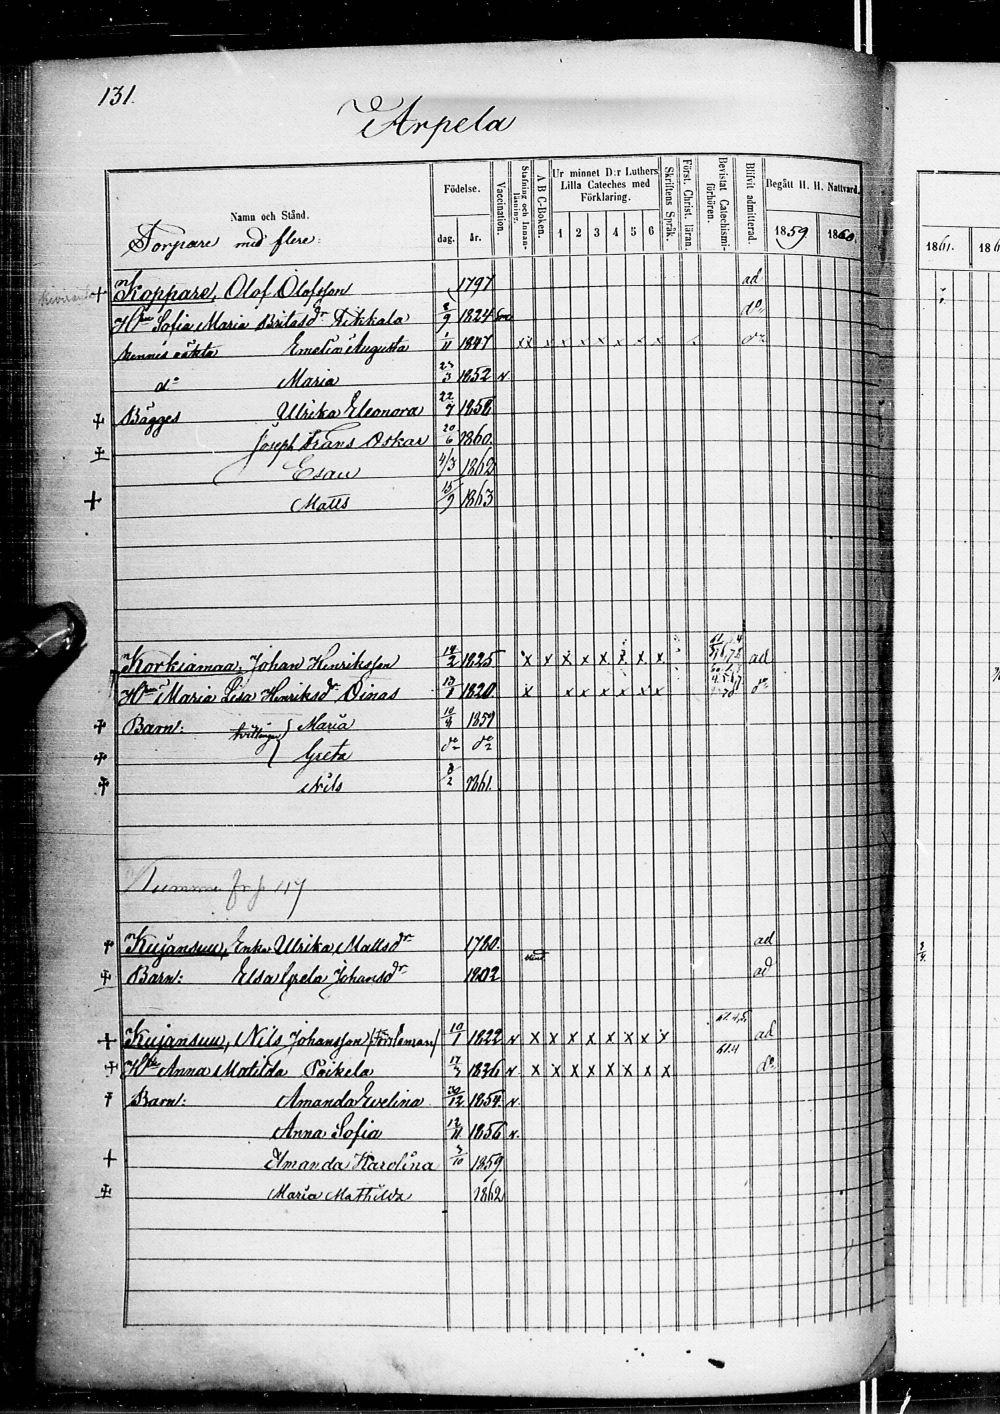 131.
Arpela
Namn och Stånd.
Torpare med flere:
Födelse.
dag. år.
Vaccination.
Stafning och Innanläsning.
A B C-Boken.
Ur minnet D:r Luthers Lilla Cateches med Förklaring.
1 2 3 4 5 6
Skriftens Språk.
Först. Christ. läran.
Bevistat Catechismi-förhören.
Blifvit admitterad.
Begått H. H. Nattvard.
1859 1860.
1861. 186
+ Koppare, Olof Olofsson 1797 ad
Hu Sofia Maria Britasdr Tikkala 8/9 1824 do
hennes oäkta Emelia Augusta 1/11 1847 x x x x x x x x do
do Maria 23/3 1852 v.
+ Bägges Ulrika Eleonora 22/7 1858
+ Joseph Frans Oskar 20/6 1860.
Esau 4/3 1862
+ Matts 15/9 1863
Korkiamaa, Johan Henriksson 14/2 1825 x x x x x x x x ad
Hu Maria Lisa Henriksdr Oinas 13/1 1820 x x x x x x x do
+ Barn: tvillingar Maria 10/8 1859
+ Greta do do
+ Nils 8/2 1861.
+ Kujansuu, Enka Ulrika Mattsdr 1780. blind ad
+ Barn: Elsa Greta Johansdr 1802 ad
+ Kujansuu, Nils Johansson 10/1 1822 v x x x x x x x x 61.4,5. ad
+ Hu Anna Matilda Poikela 17/3 1836 v. x x x x x x x x 61.4 do
+ Barn: Amanda Evelina 30/12 1854 v.
Anna Sofia 12/11 1856 v.
+ Amanda Karolina 3/10 1859
+ Maria Mathilda 1862